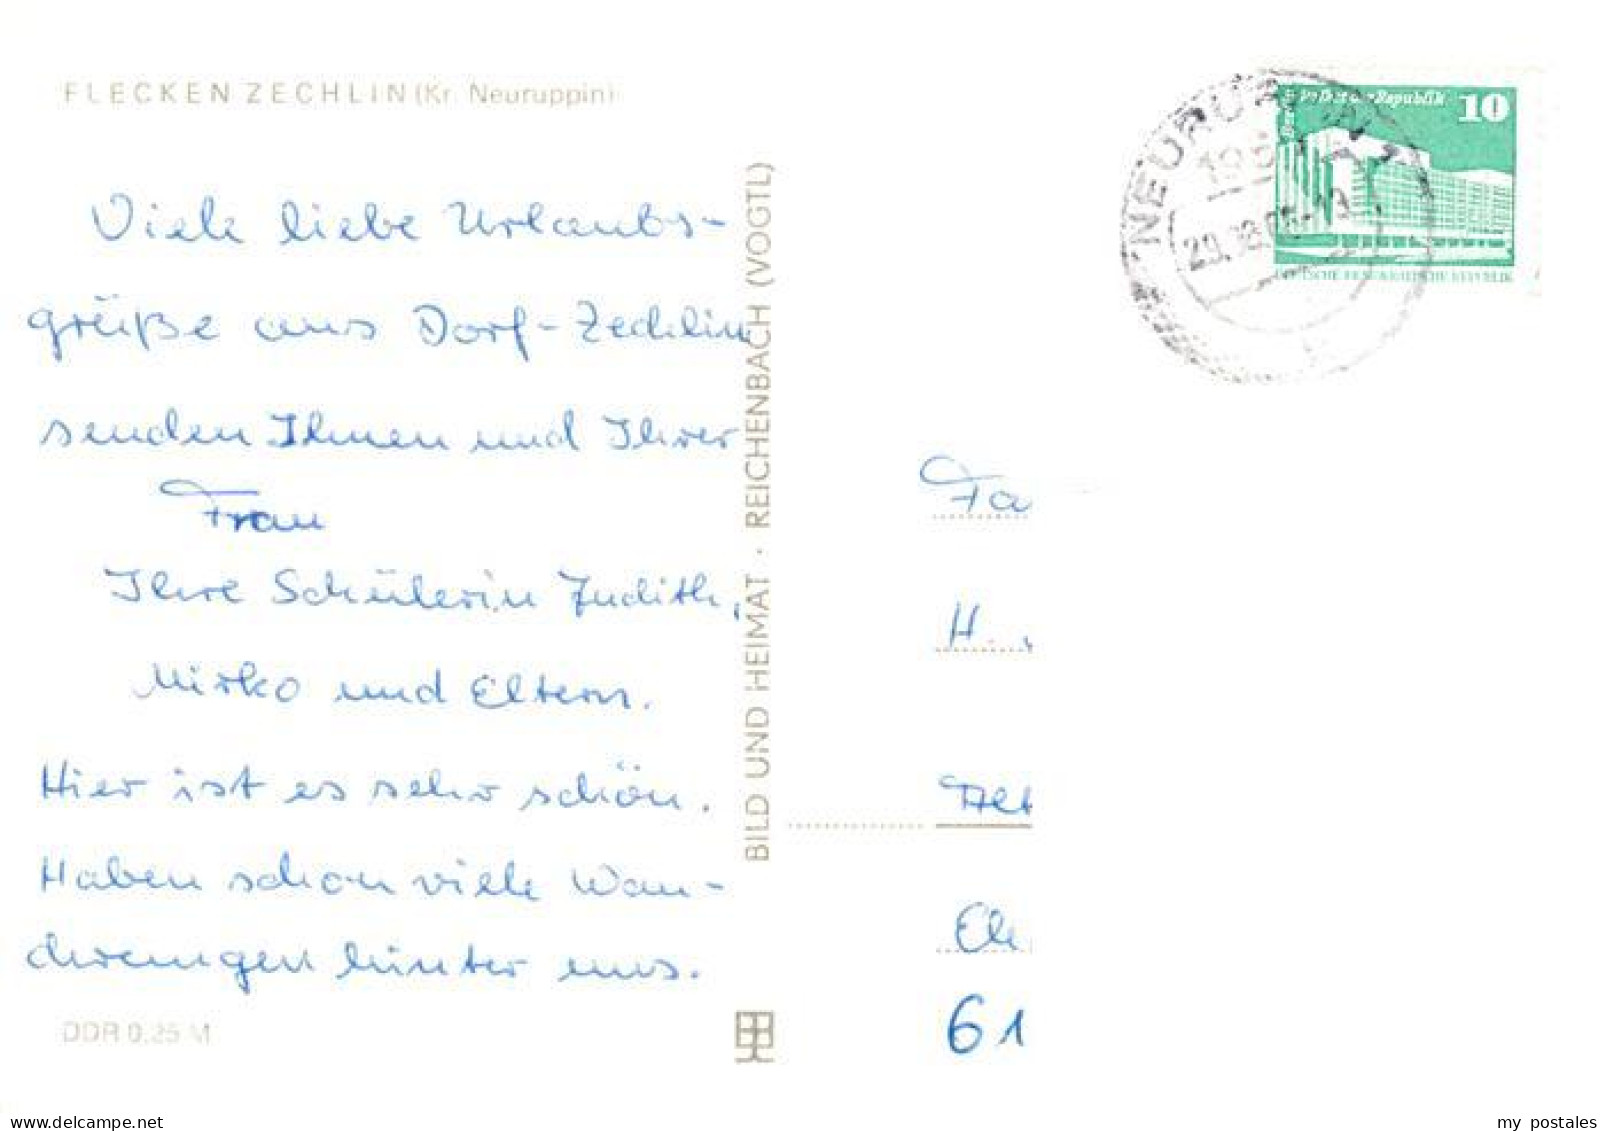 FLECKEN ZECHLIN (Kr. Neuruppin)
Viele liebe Urlaubs-
grüße aus Dorf-Zechlin
senden Ihnen und Ihrer
Frau
Ihre Schülerin Judith,
Mirko und Eltern.
Hier ist es sehr schön.
Haben schon viele Wan-
derungen hinter uns.
DDR 0,25 M
BILD UND HEIMAT · REICHENBACH (VOGTL)
Palast der Republik 10
DEUTSCHE DEMOKRATISCHE REPUBLIK
NEURUPPIN 1
Fa
H
61
delcampe.net
my postales